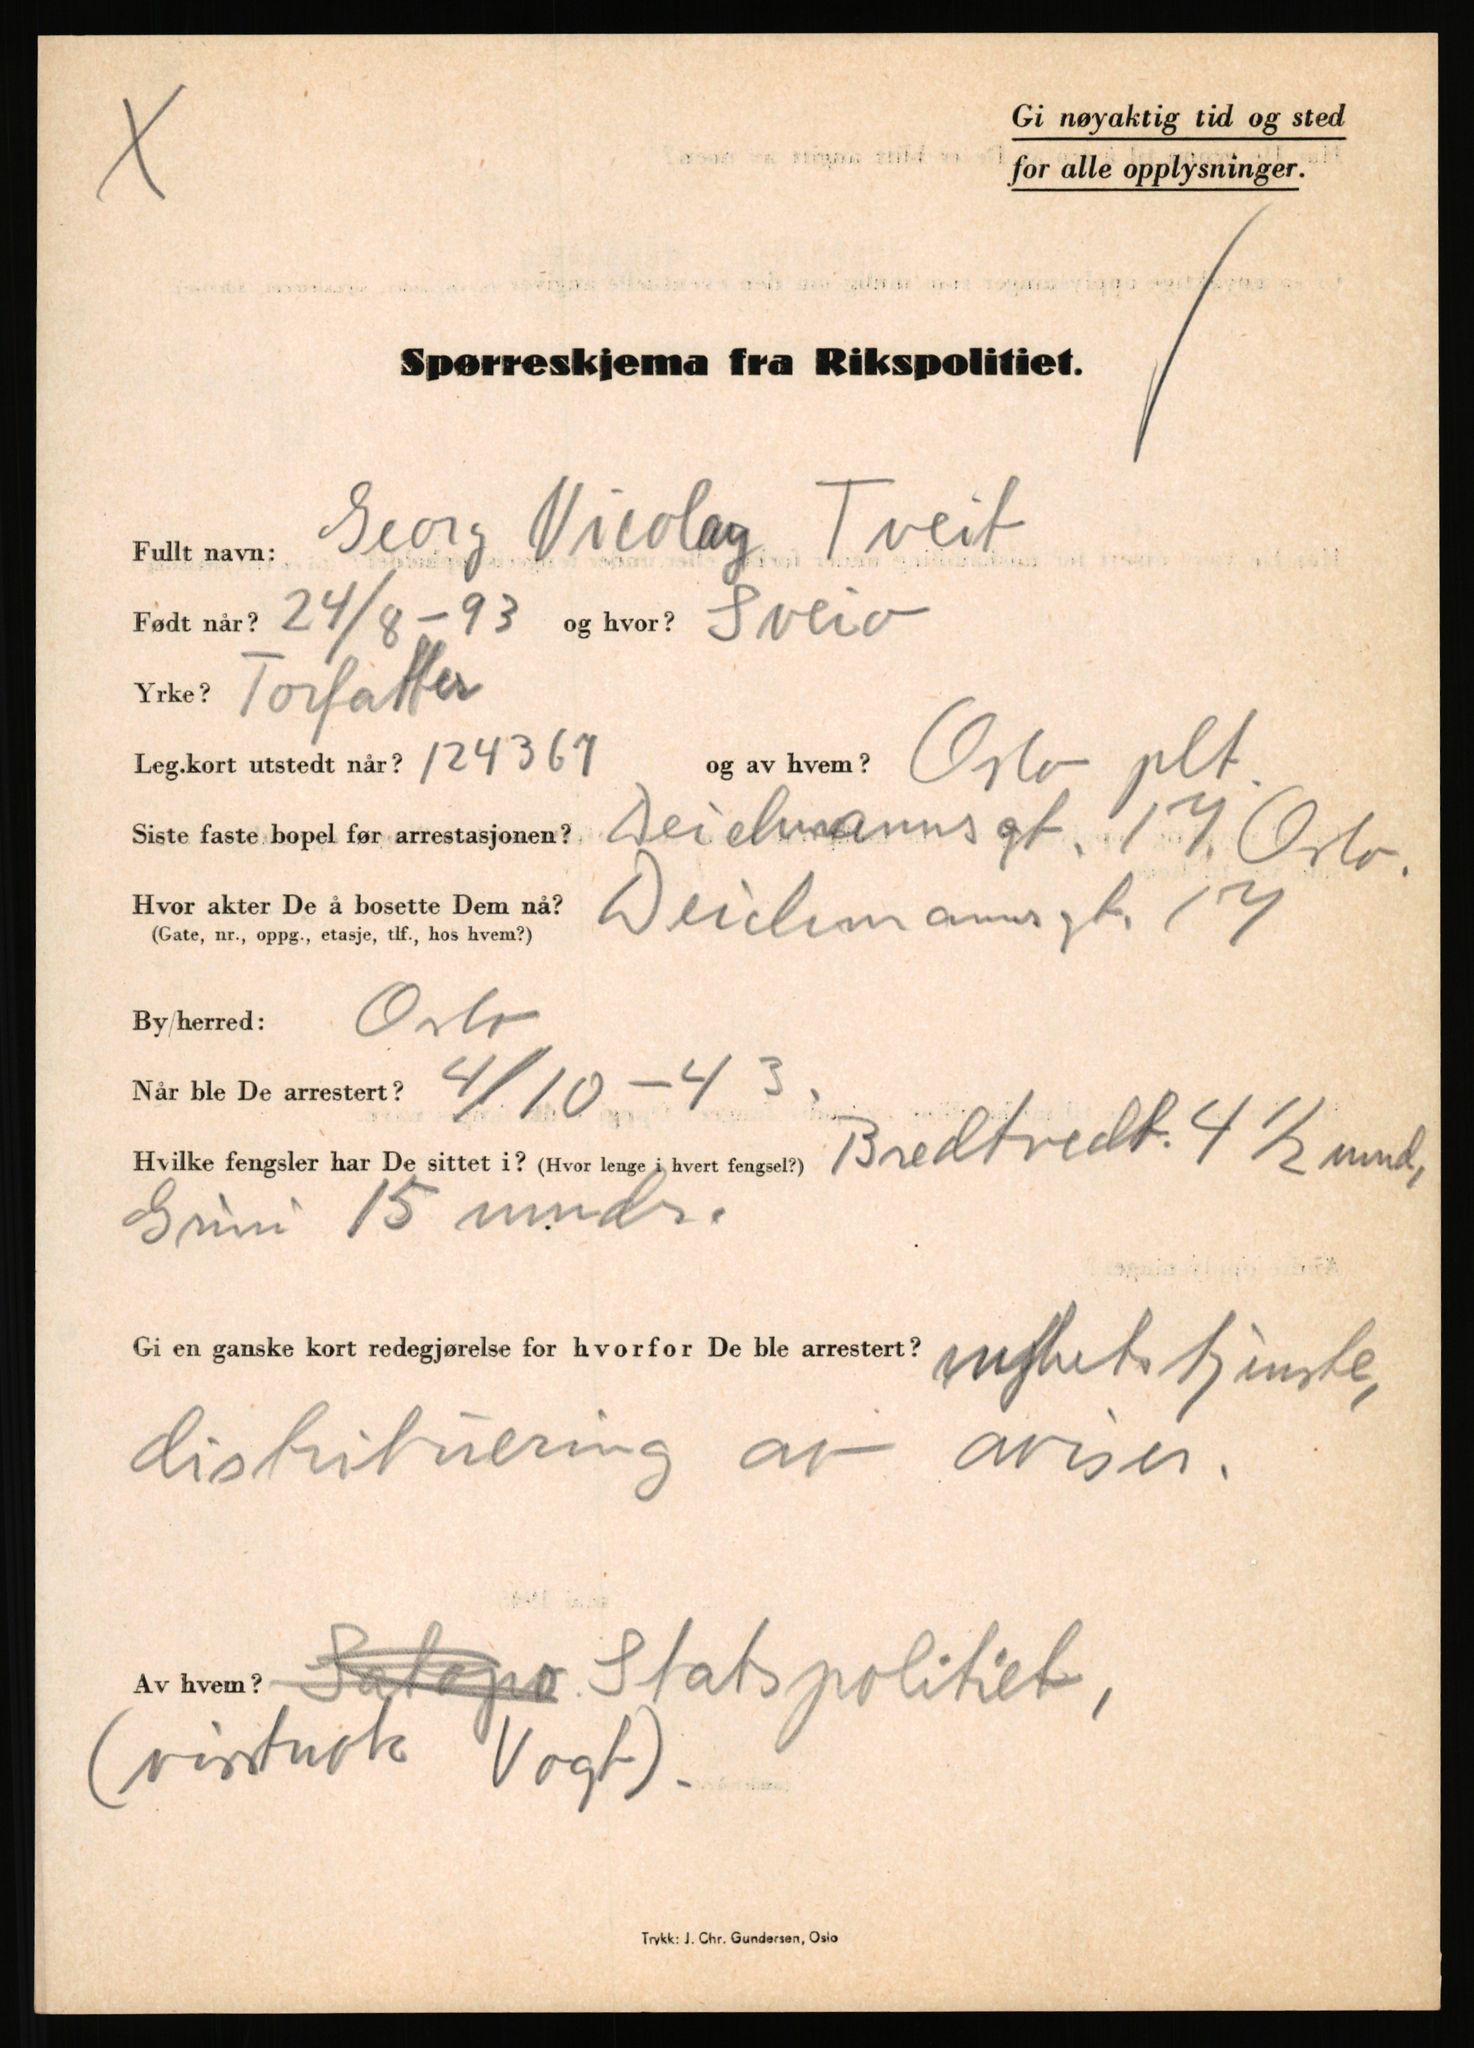 X
Gi nøyaktig tid og sted
for alle opplysninger.
Spørreskjema fra Rikspolitiet.
Fullt navn: Georg Nicolay Tveit
Født når? 24/8-93 og hvor? Sveio
Yrke? Forfatter
Leg.kort utstedt når? 124367 og av hvem? Oslo plt.
Siste faste bopel før arrestasjonen? Deichmannsgt. 17, Oslo.
Hvor akter De å bosette Dem nå? Deichmannsgt. 17
(Gate, nr., oppg., etasje, tlf., hos hvem?)
By/herred: Oslo
Når ble De arrestert? 4/10-43.
Hvilke fengsler har De sittet i? (Hvor lenge i hvert fengsel?) Bredtvedt. 4 1/2 mnd,
Grini 15 mndr.
Gi en ganske kort redegjørelse for hvorfor De ble arrestert? nyhetstjeneste,
distribuering av aviser.
Av hvem? Statspolitiet,
(visstnok Vogt).
Trykk: J. Chr. Gundersen, Oslo